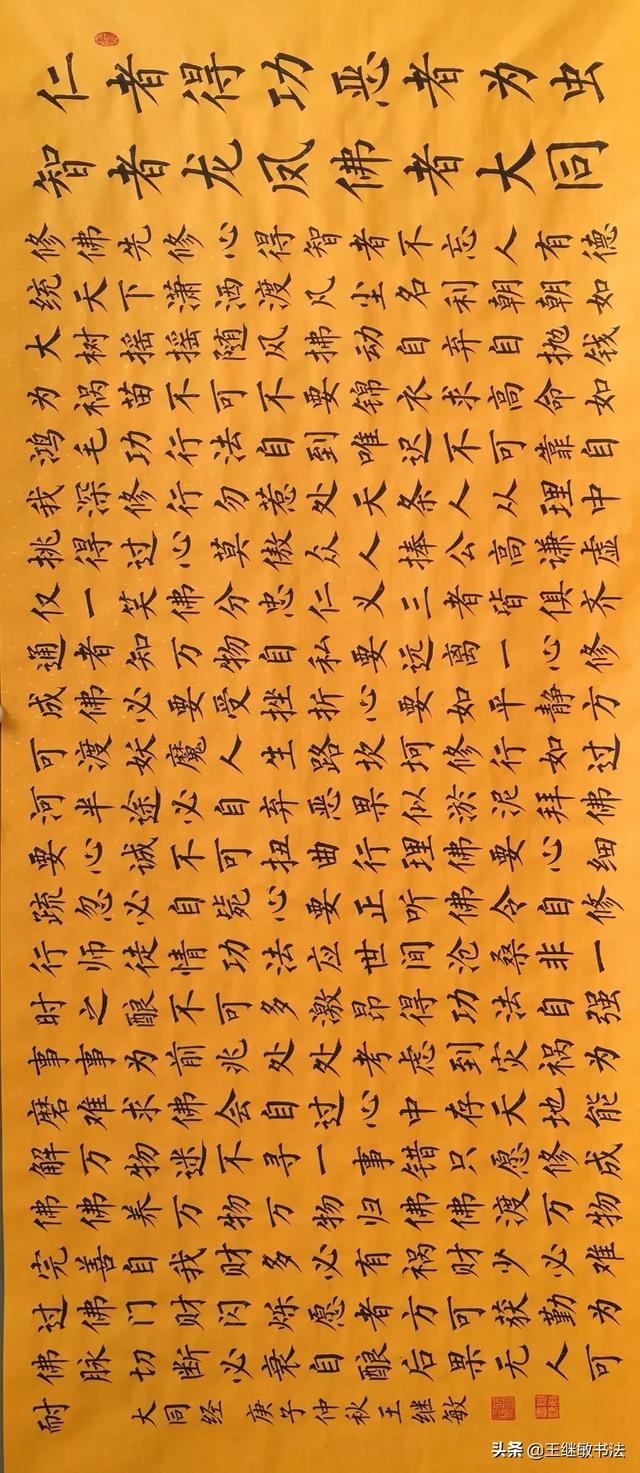 仁者得功恶者为虫
智者龙凤佛者大同
修佛先修心得智者不忘人有德
统天下潇洒渡凡尘名利朝朝如
大树摇摇随风拂动自弃自抛钱
为祸苗不可不要锦衣求高命如
鸿毛功行法自到唯迟不可靠自
我深修行勿惹处天条人从理中
挑得过心莫傲众人捧公高谦虚
仅一笑佛分忠仁义三者皆俱齐
通者知万物自私要远离一心修
成佛必要受挫折心要如平静方
可渡妖魔人生路坎坷修行如过
河半途必自弃恶果似淤泥拜佛
要心诚不可扭曲行理佛要心细
疏忽必自毙心要正听佛令自修
行师徒情功法应世间沧桑非一
时之酿不可多激昂得功法自强
事事为前兆处处考虑到灾祸为
磨难求佛会自过心中存天地能
解万物迷不寻一事错只愿修成
佛佛养万物万物归佛佛渡万物
完善自我财多必有祸财少必难
过佛门财闪烁愿者方可获勤为
佛脉切断必衰自酿后果无人可
耐 大同经 庚子仲秋王继敏
头条 @王继敏书法